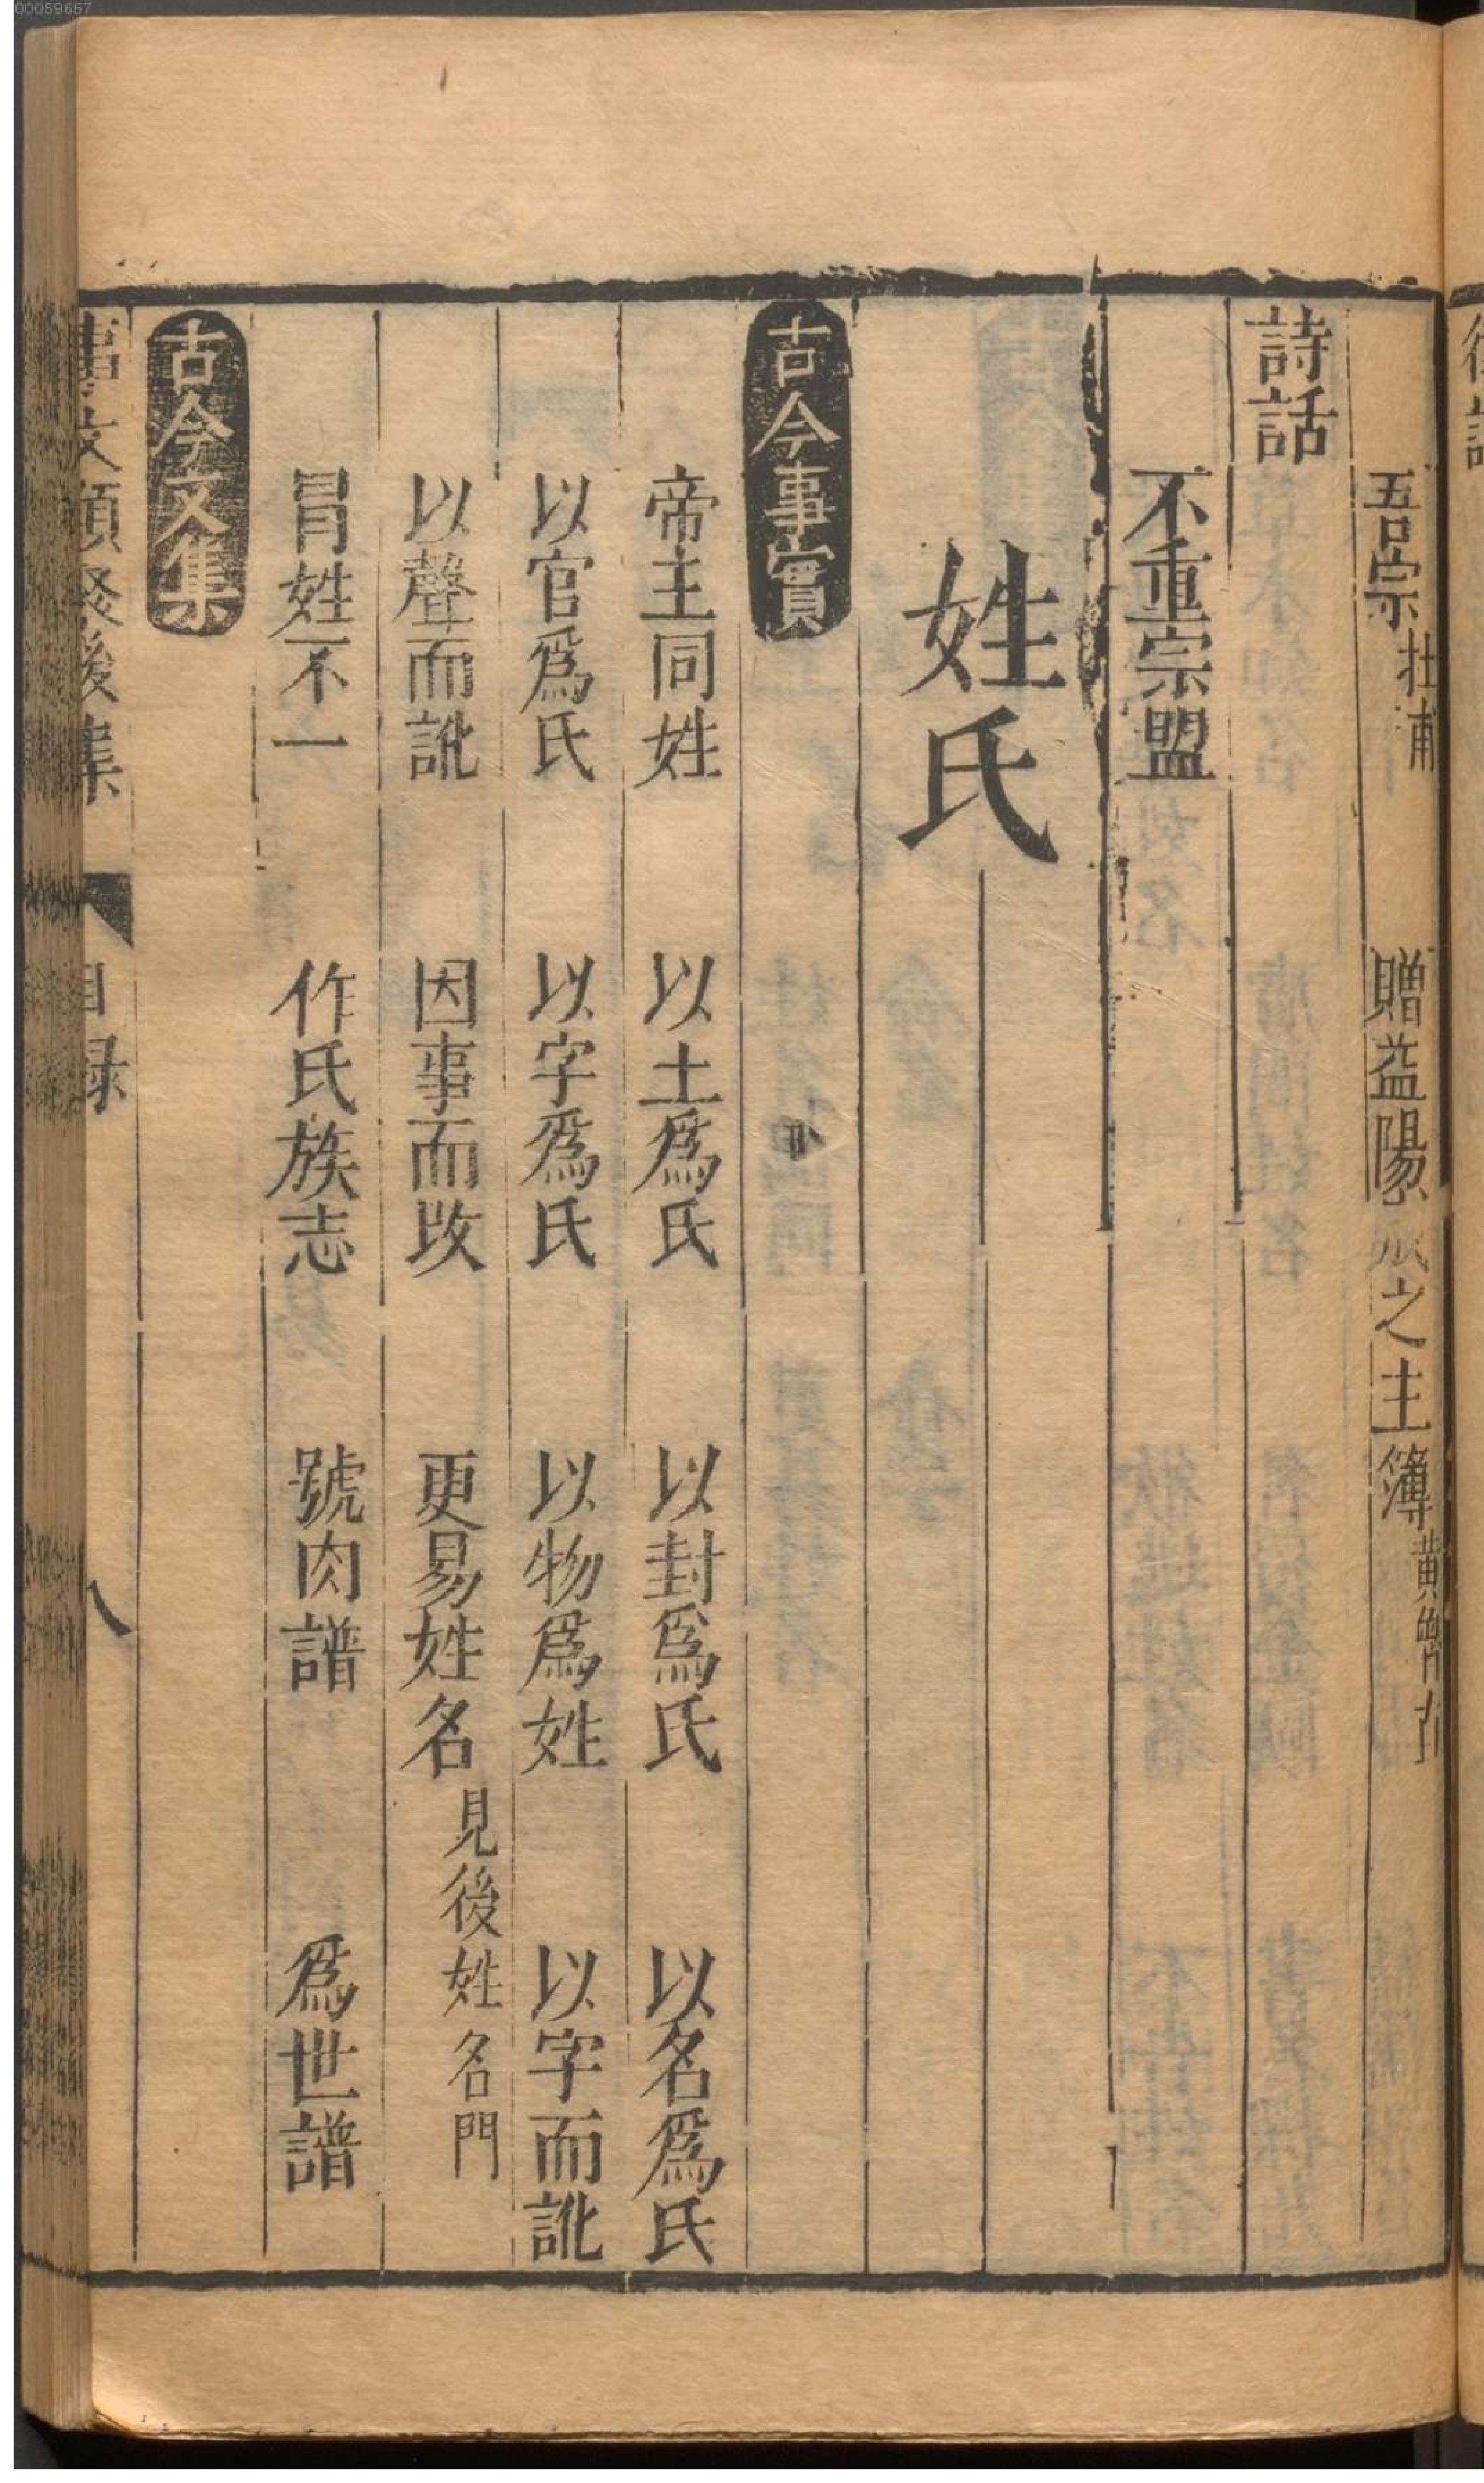 00059657
吾宗 杜甫 贈益陽成之主簿 黃
詩話
不重宗盟
姓氏
古今事實
帝王同姓 以土爲氏 以封爲氏 以名爲氏
以官爲氏 以字爲氏 以物爲姓 以字而訛
以聲而訛 因事而改 更易姓名 見後姓名門
冐姓不一 作氏族志 號肉譜 爲世譜
古今文集
事文類聚後集 目録 八